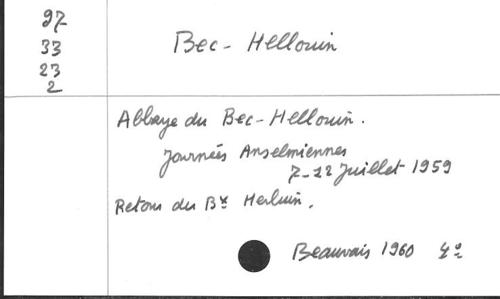 97
33
23
2
Bec-Hellouin
Abbaye du Bec-Hellouin.
Journées Anselmiennes
7-12 Juillet 1959
Retour du Bx Herluin.
Beauvais 1960 4º